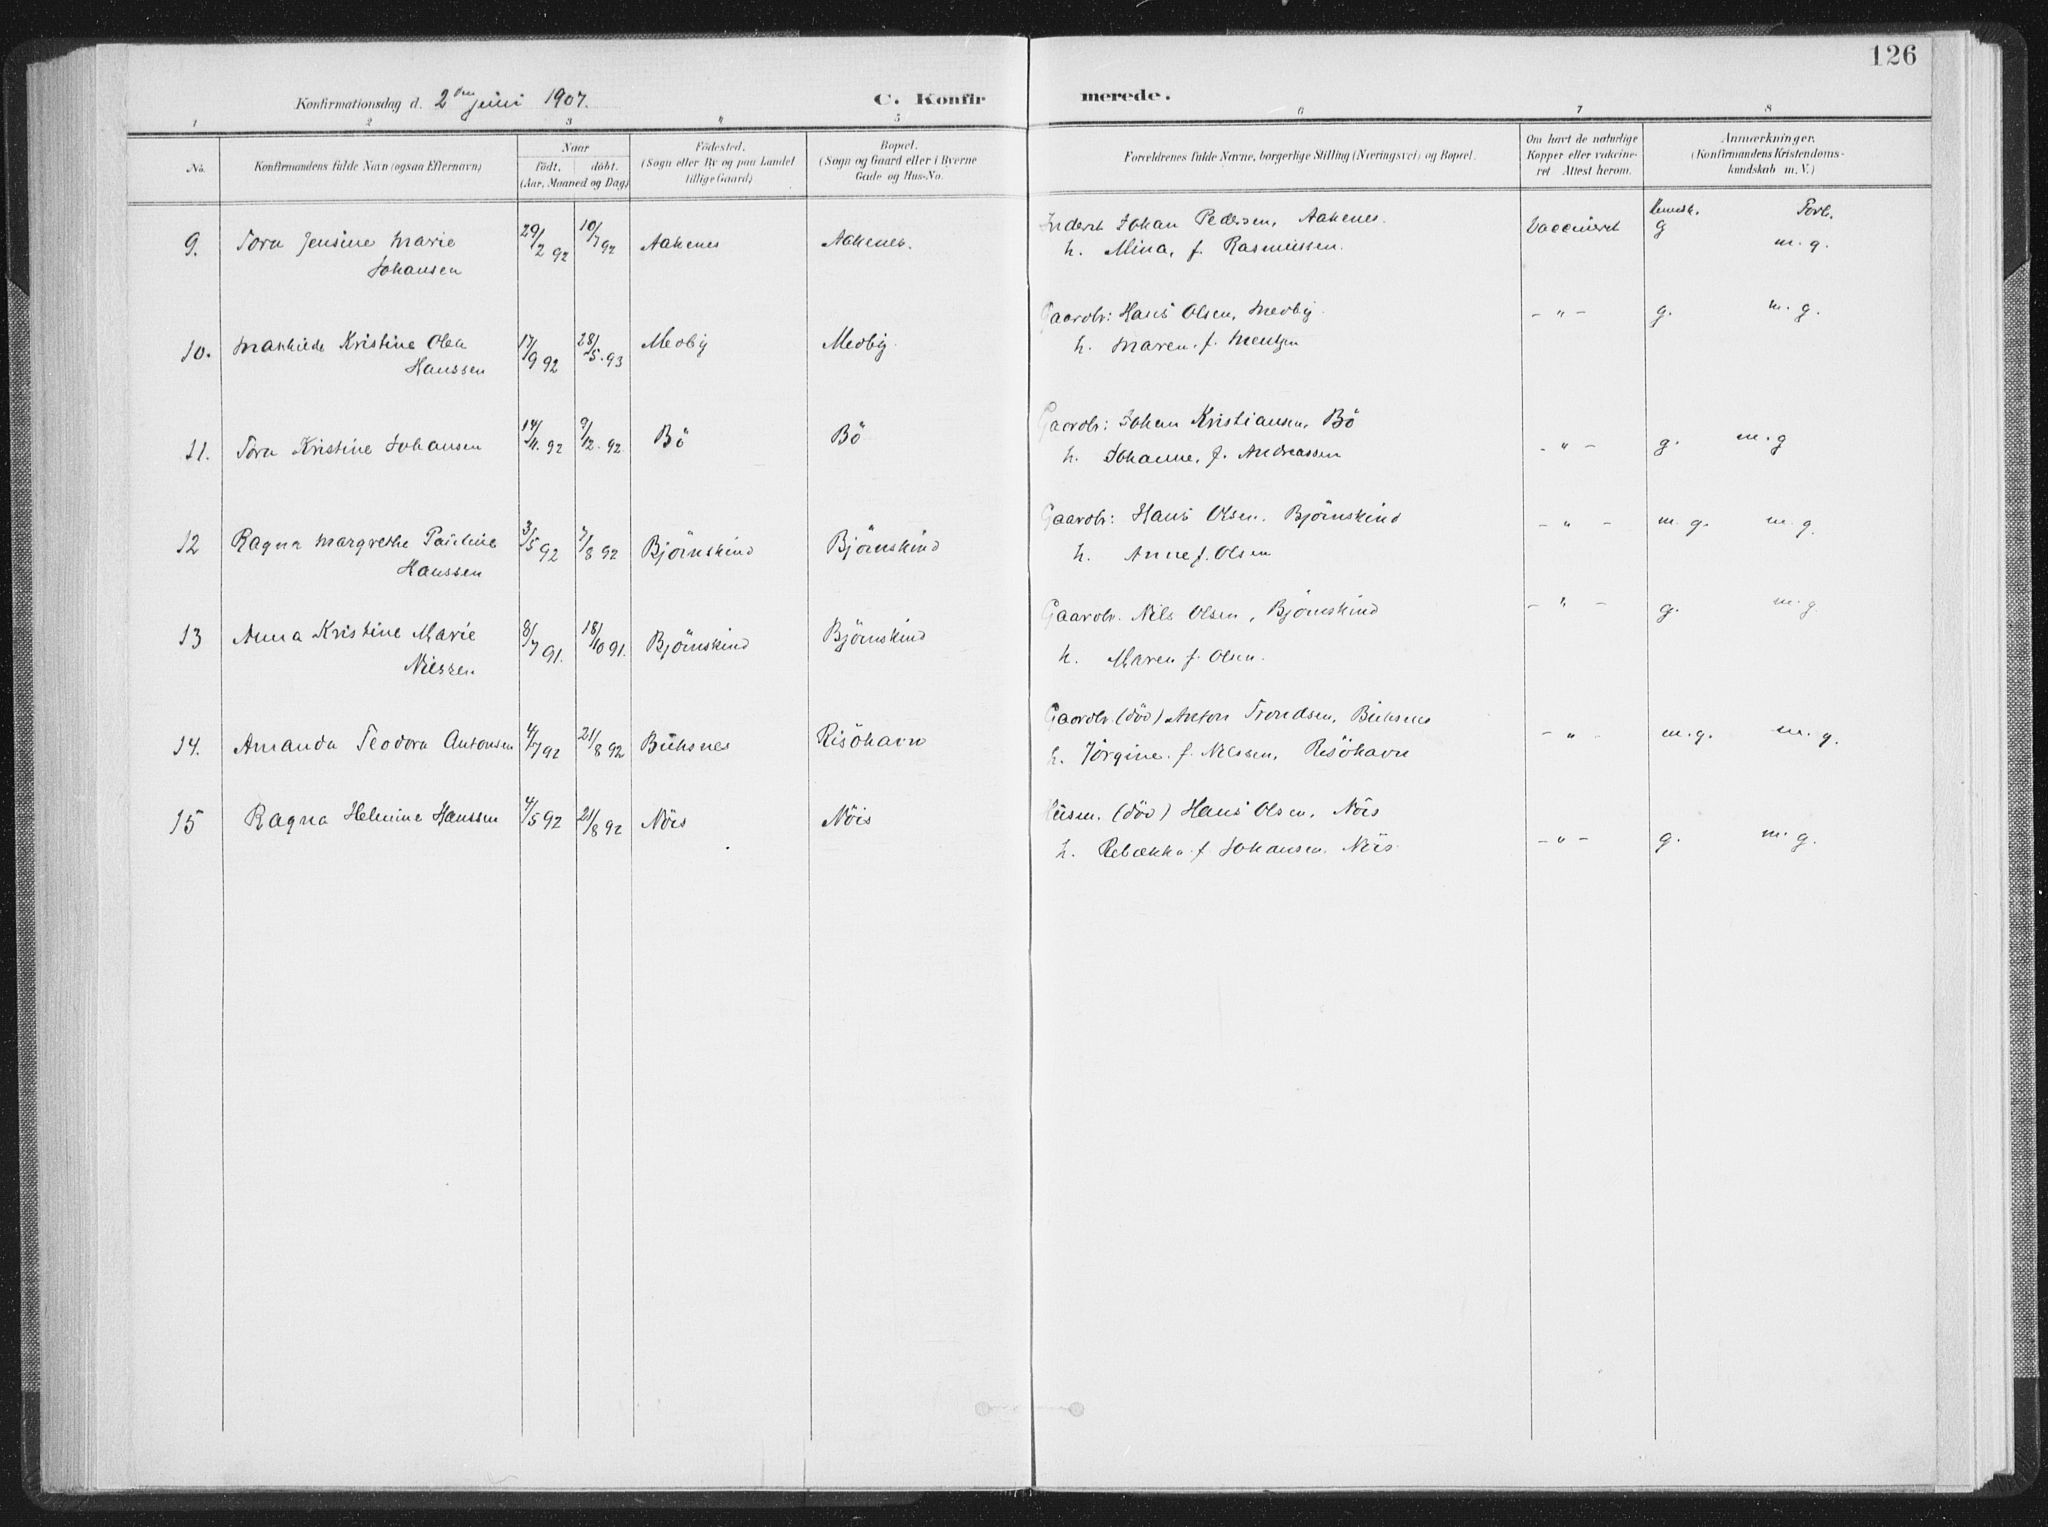 126
Konfirmationsdag d. 2den juni 1907.
C. Konfirmerede.
1 2 3 " 5 6 7 8
No.
Konfirmandens fulde Navn (ogsaa Efternavn)
Naar
født. døbt.
(Aar, Maaned og Dag)
Fødested.
(Sogn eller By og paa Landet
tillige Gaard)
Bopæl.
(Sogn og Gaard eller i Byerne
Gade og Hus-No.
Forældrenes fulde Navne, borgerlige Stilling (Næringsvei) og Bopæl.
Om havt de naturlige
Kopper eller vakcine-
ret Attest herom.
Anmærkninger.
(Konfirmandens Kristendoms-
kundskab m. V.)
Kundsk. Forh.
9. Tora Jensine Marie 29/2 92 10/7 92 Aakenes Aakenes. Inderst Johan Pedersen, Aakenes. Vaccineret g m. g.
Johansen h. Mina, f. Rasmussen.
10. Mathilde Kristine Olea 17/9 92 28/5. 93 Medby Medby. Gaardbr: Hans Olsen, Medby. - " - g. m. g.
Hanssen h. Maren. f. Mentzen
11. Tora Kristine Johansen 14/11. 92 9/12. 92 Bö Bö Gaardbr: Johan Kristiansen, Bö - " - g. m. g
h. Johanne, f. Andreassen
12 Ragna Margrethe Pauline 3/5 92 7/8 92 Bjørnskind Bjørnskind Gaardbr: Hans Olsen. Bjørnskind - " - m. g. m. g.
Hanssen h. Anne f. Olsen
13 Anna Kristine Marie 8/7 91. 18/10 91. Bjørnskind Bjørnskind Gaardbr. Nils Olsen, Bjørnskind - " - g. m. g.
Nilssen h. Maren f. Olsen.
14. Amanda Teodora Antonsen 4/7 92 21/8 92 Buksnes Risöhavn Gaardbr. (död) Anton Trondsen, Buksnes - " - m. g. m. g.
h. Jörgine. f. Nilssen, Risöhavn
15 Ragna Helmine Hanssen 4/5 92 21/8 92 Nöis Nöis Husm. (död) Hans Olsen, Nöis - " - g. m. g.
h. Rebækka. f. Johansen, Nöis.